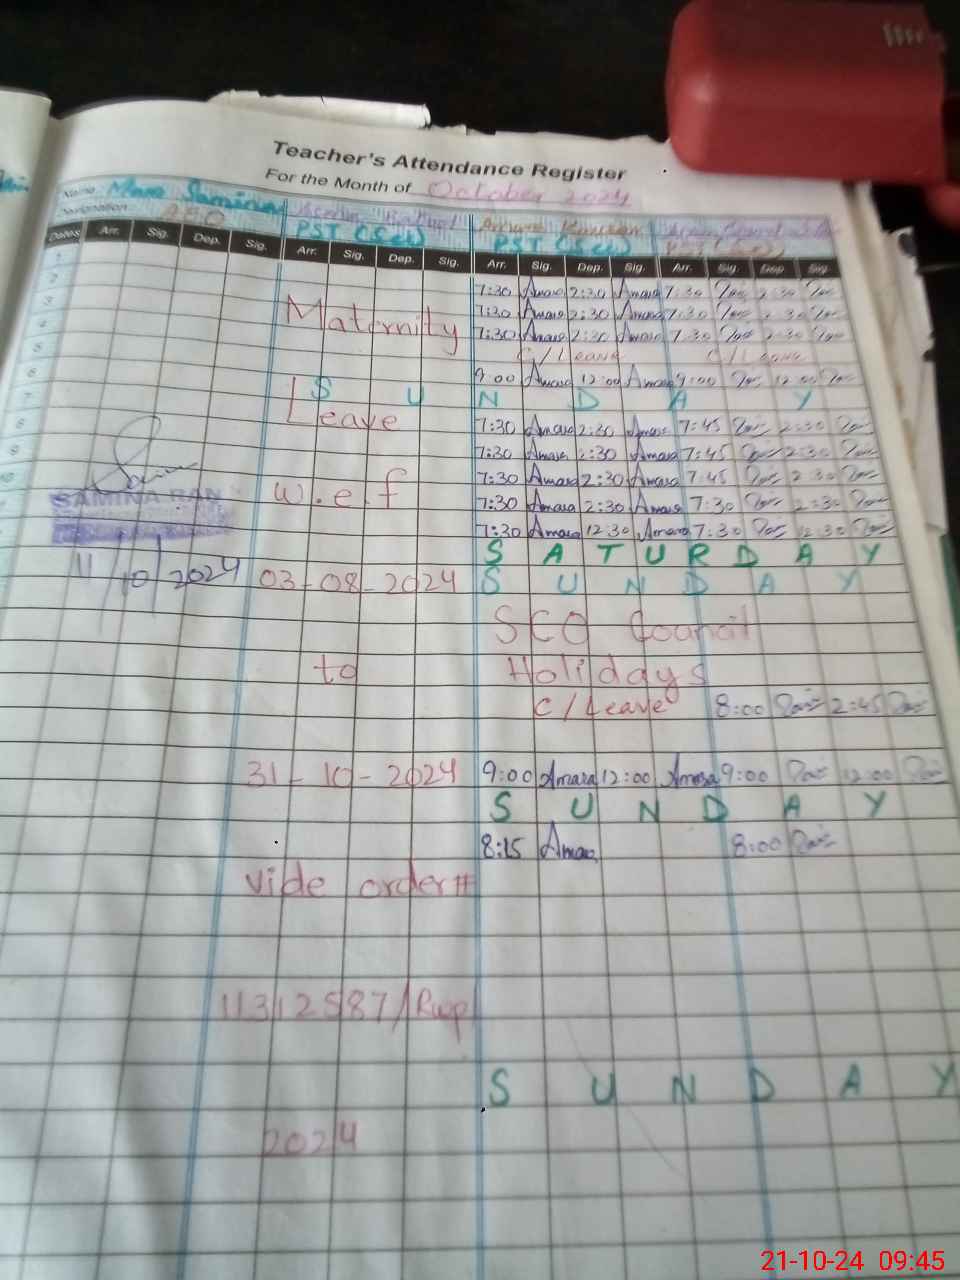 Teacher's Attendance Register
For the Month of October 2024
Name
Designation AEO PST (Sci) PST (Sci)
Dates Arr. Sig. Dep. Sig. Arr. Sig. Dep. Sig. Arr. Sig. Dep. Sig. Arr. Sig. Dep. Sig.
1
2 7:30 Amara 2:30 Amara 7:30 2:30
3 Maternity 7:30 Amara 2:30 Amara 7:30 2:30
4 7:30 Amara 2:30 Amara 7:30 2:30
5 C/Leave C/Leave
6 9:00 Amara 12:00 Amara 9:00 12:00
7 S U N D A Y
8 Leave 7:30 Amara 2:30 Amara 7:45 2:30
9 7:30 Amara 2:30 Amara 7:45 2:30
10 w.e.f 7:30 Amara 2:30 Amara 7:45 2:30
SAMINA 7:30 Amara 2:30 Amara 7:30 2:30
7:30 Amara 12:30 Amara 7:30 12:30
S A T U R D A Y
11/10/2024 03-08-2024 S U N D A Y
SCO Council
to Holidays
C/Leave 8:00 2:45
31-10-2024 9:00 Amara 12:00 Amara 9:00 12:00
S U N D A Y
8:15 Amara 8:00
vide order #
11312587/Rwp
S U N D A Y
2024
21-10-24 09:45